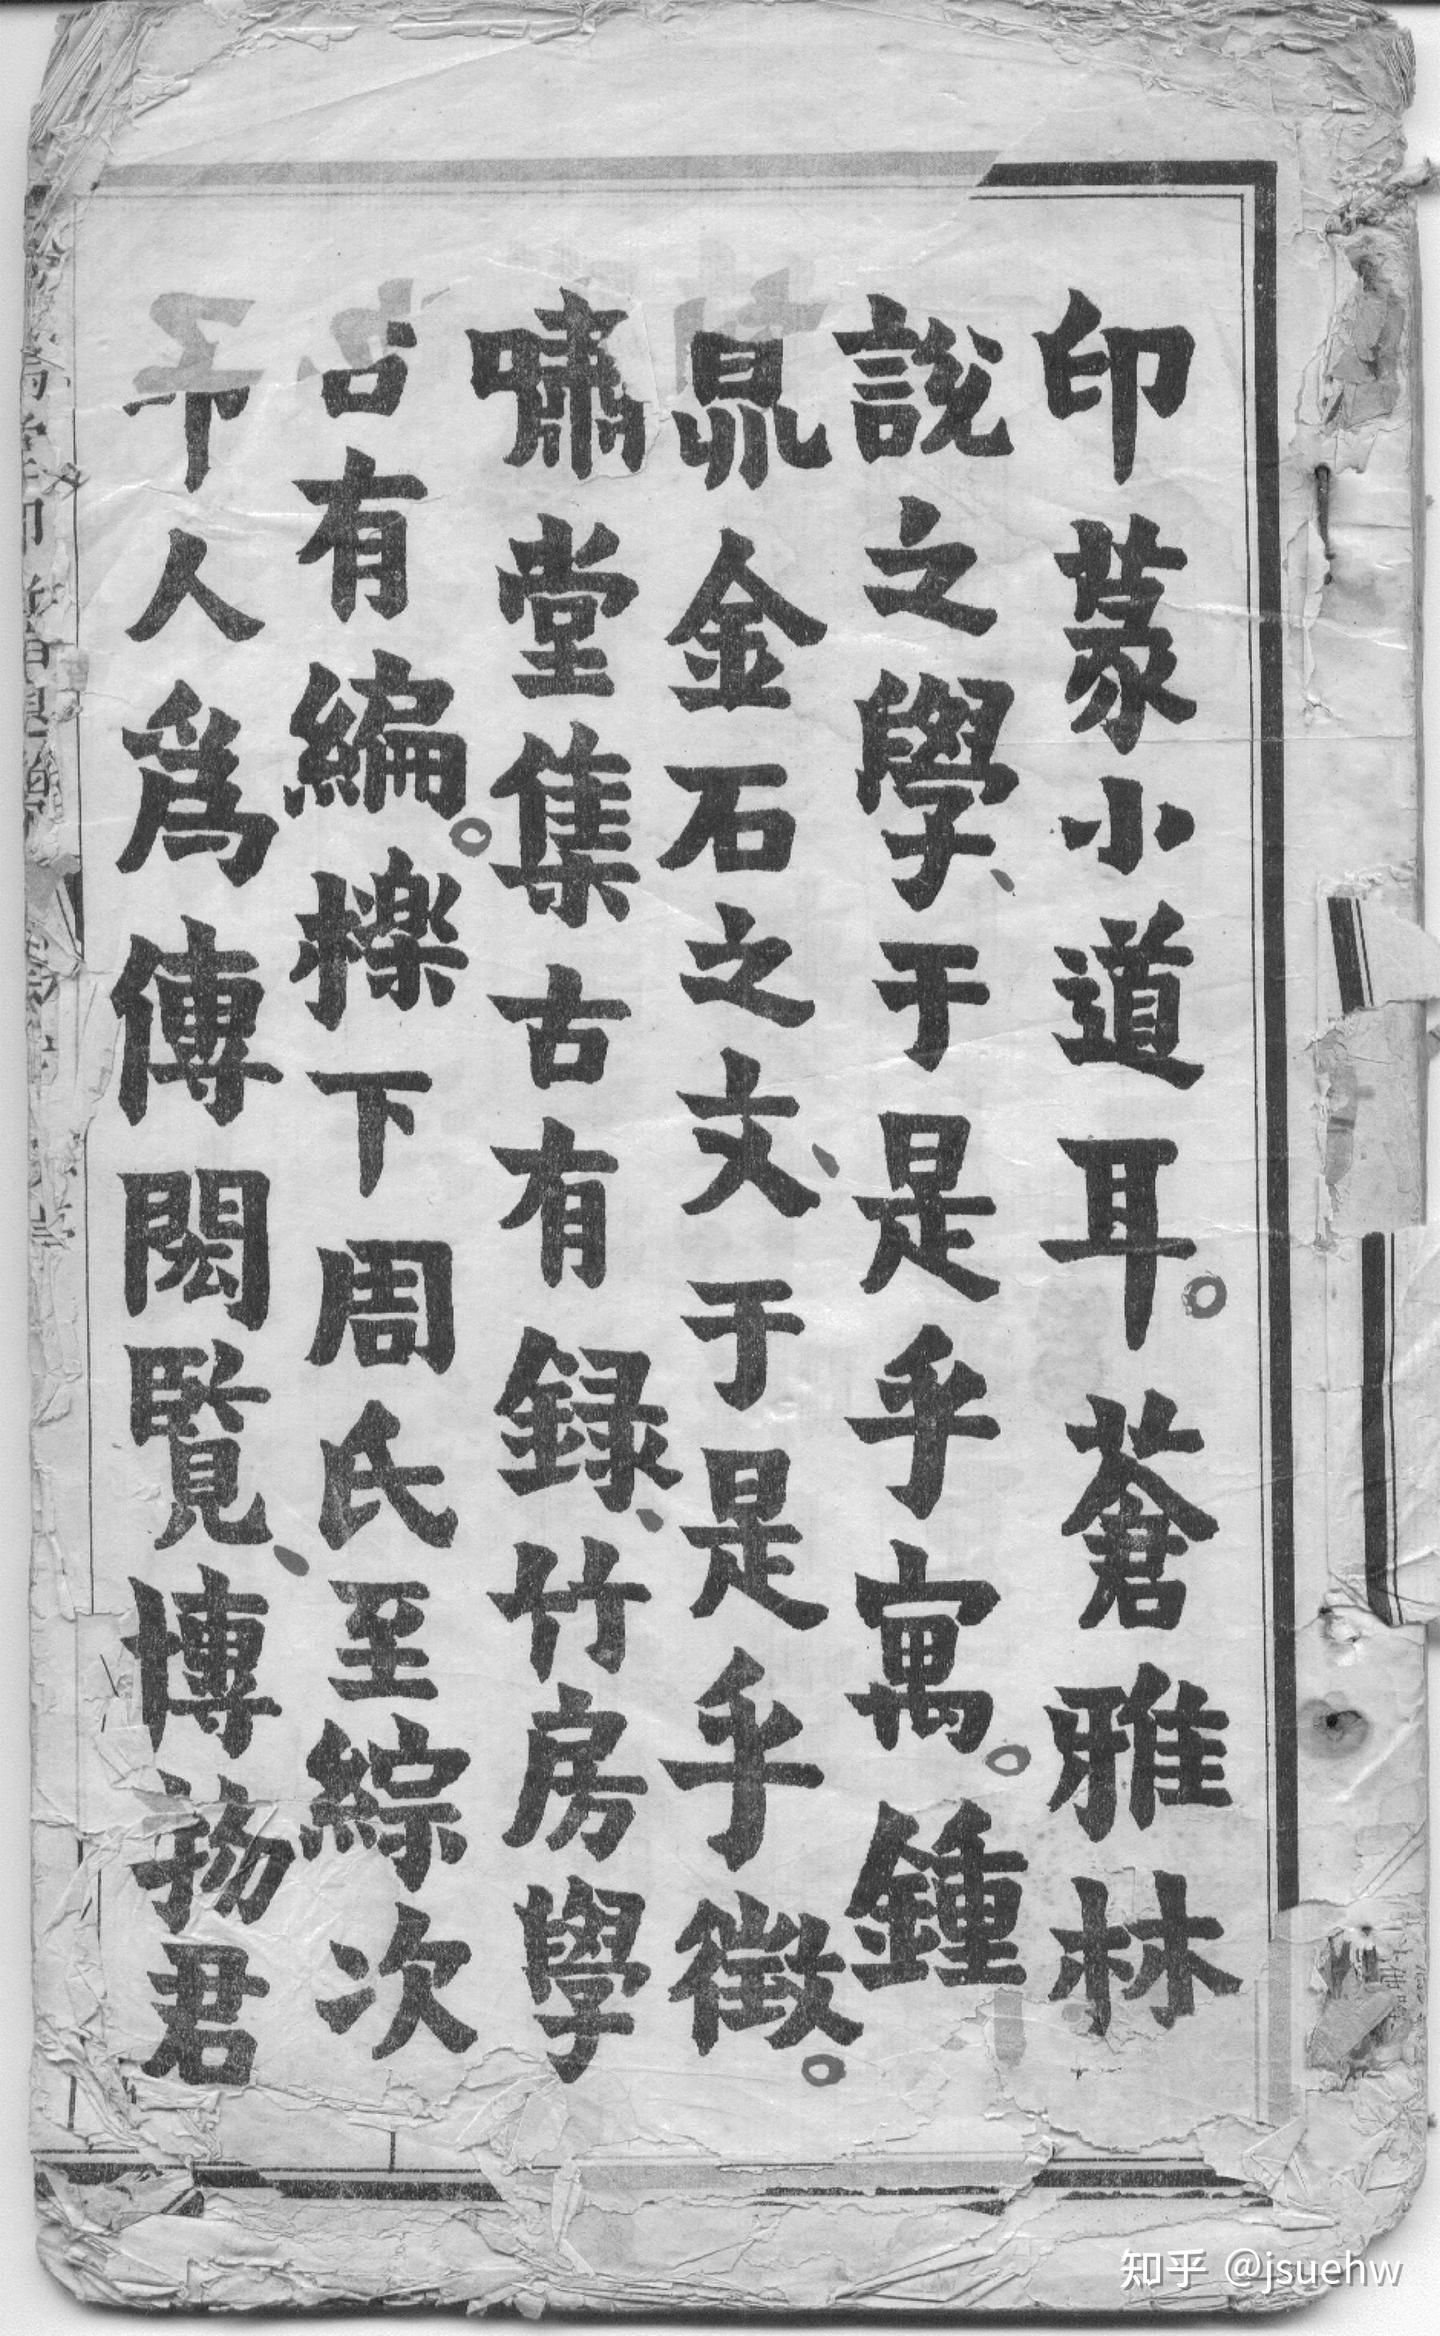 印篆小道耳。蒼雅林
說之學、于是乎寓。鍾
鼎金石之文、于是乎徵。
嘯堂集古有錄、竹房學
古有編。櫟下周氏至綜次
印人爲傳閎覽、博物君
知乎 @jsuehw